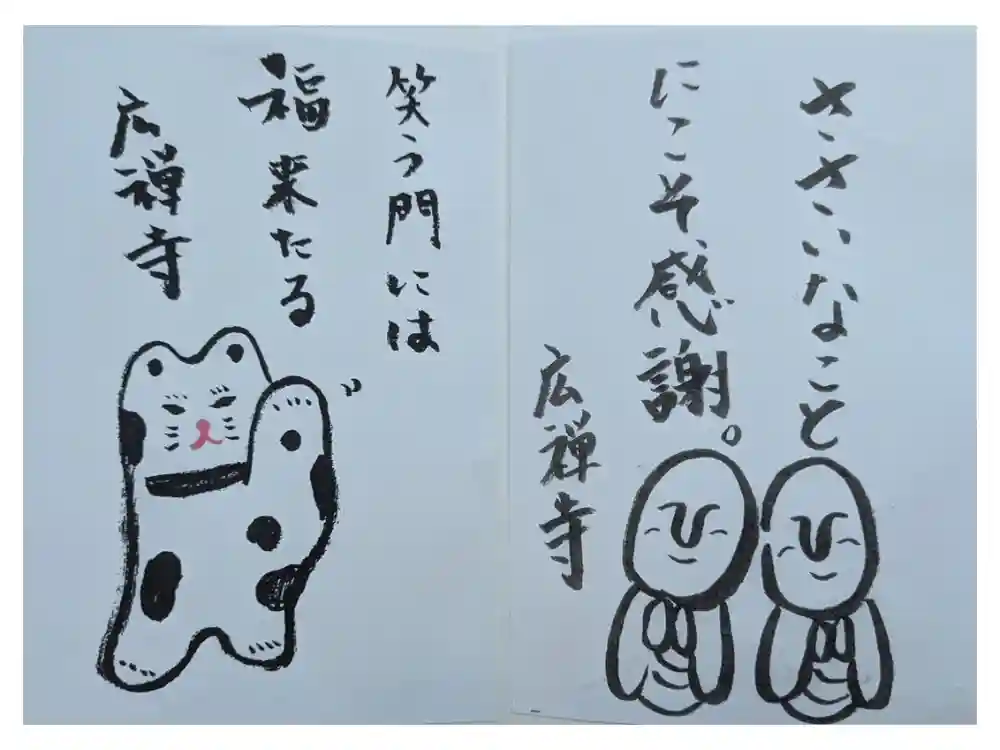 ささいなこと
にこそ、感謝。
広禅寺
笑う門には
福来たる
広禅寺